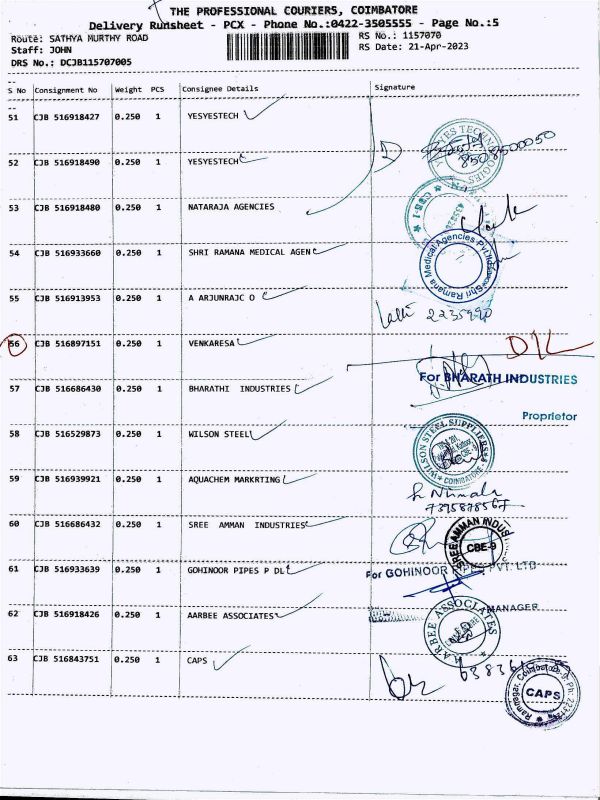 THE PROFESSIONAL COURIERS, COIMBATORE
Delivery Runsheet - PCX - Phone No.:0422-3505555 - Page No.:5
Route: SATHYA MURTHY ROAD
RS No.: 1157070
Staff: JOHN
RS Date: 21-Apr-2023
DRS No.: DCJB115707005
S No Consignment No Weight PCS Consignee Details Signature
51 CJB 516918427 0.250 1 YESYESTECH
52 CJB 516918490 0.250 1 YESYESTECH
8508500050
53 CJB 516918480 0.250 1 NATARAJA AGENCIES
54 CJB 516933660 0.250 1 SHRI RAMANA MEDICAL AGEN
Shri Ramana Medical Agencies Pvt Ltd
55 CJB 516913953 0.250 1 A ARJUNRAJC O
2235990
56 CJB 516897151 0.250 1 VENKARESA
57 CJB 516686430 0.250 1 BHARATHI INDUSTRIES
For BHARATH INDUSTRIES
Proprietor
58 CJB 516529873 0.250 1 WILSON STEEL
WILSON STEEL SUPPLIERS
COIMBATORE
59 CJB 516939921 0.250 1 AQUACHEM MARKRTING
60 CJB 516686432 0.250 1 SREE AMMAN INDUSTRIES
SREE AMMAN INDUS
CBE-9
61 CJB 516933639 0.250 1 GOHINOOR PIPES P DL
For GOHINOOR PIPES PVT. LTD
MANAGER
62 CJB 516918426 0.250 1 AARBEE ASSOCIATES
AARBEE ASSOCIATES
63 CJB 516843751 0.250 1 CAPS
CAPS